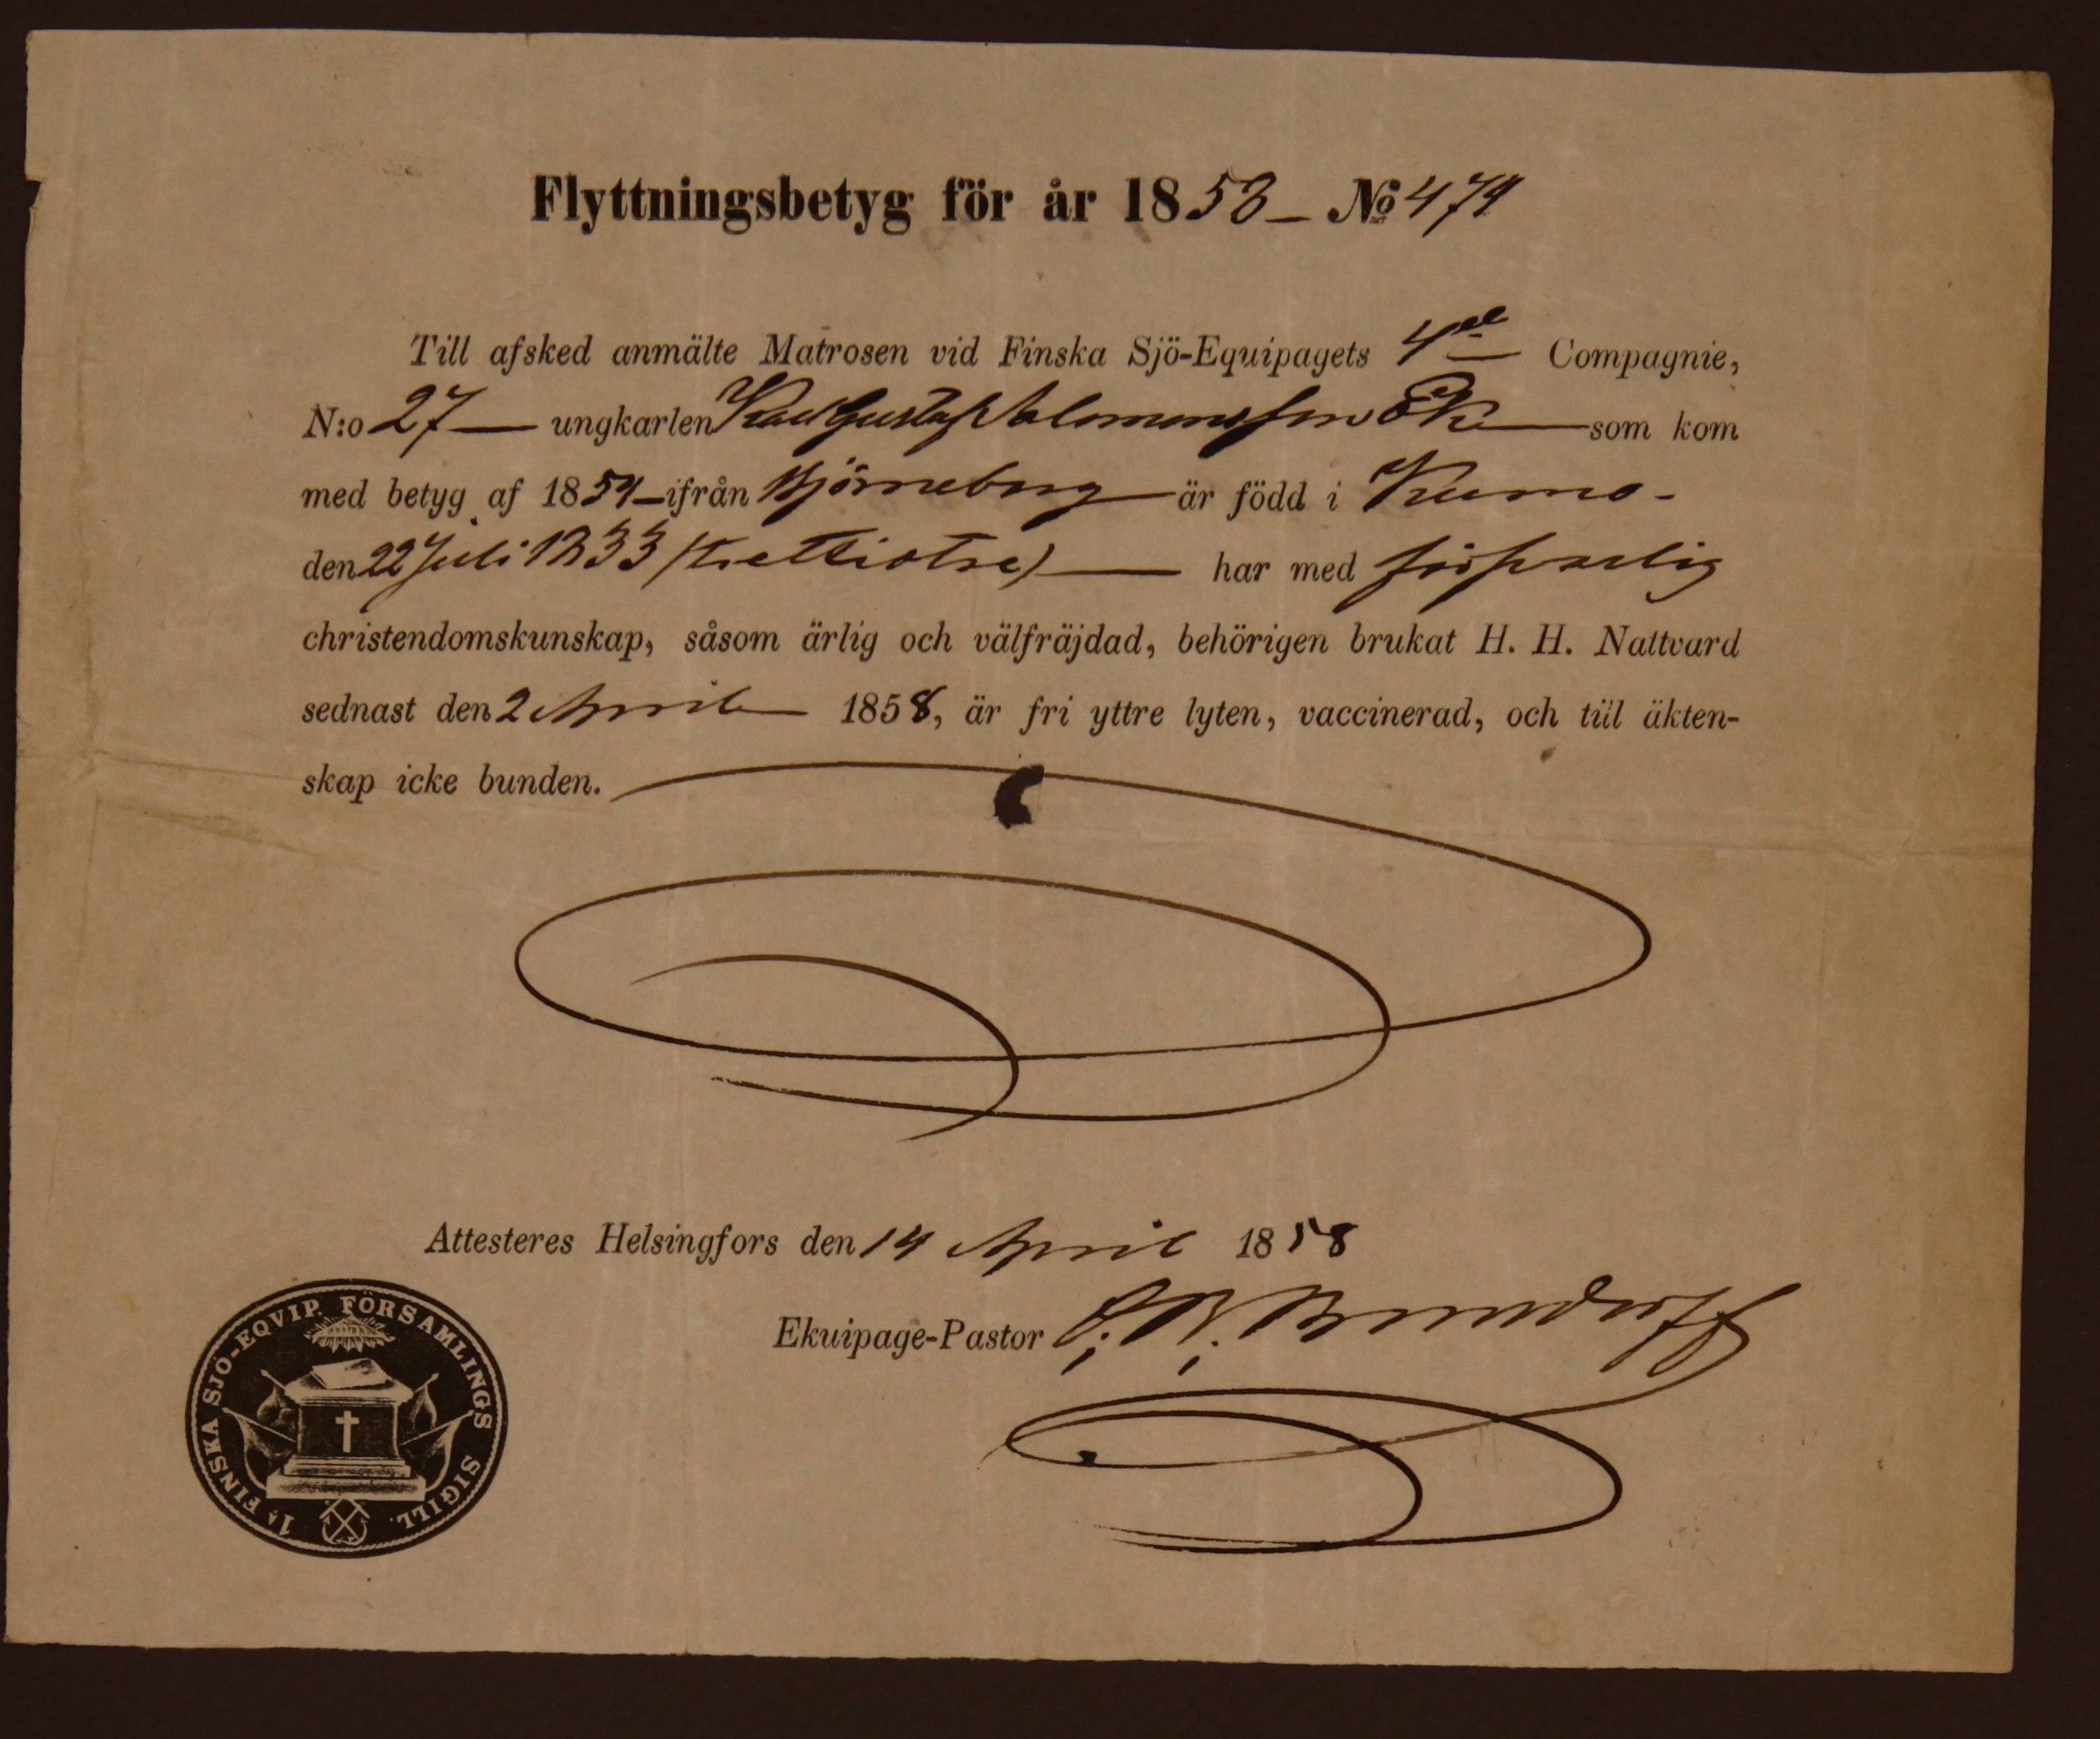 Flyttningsbetyg för år 1858 – No 474
Till afsked anmälte Matrosen vid Finska Sjö-Equipagets 4de Compagnie,
N:o 27 — ungkarlen Karl Gustaf Salomonsson Ek — som kom
med betyg af 1854 – ifrån Björneborg är född i Kumo -
den 22 Juli 1833 (trettiotre) — har med försvarlig
christendomskunskap, såsom ärlig och välfräjdad, behörigen brukat H. H. Nattvard
sednast den 2 April 1858, är fri yttre lyten, vaccinerad, och till äkten-
skap icke bunden.
Attesteres Helsingfors den 14 April 1858
Ekuipage-Pastor
1A FINSKA SJÖ-EQVIP. FÖRSAMLINGS SIGILL.